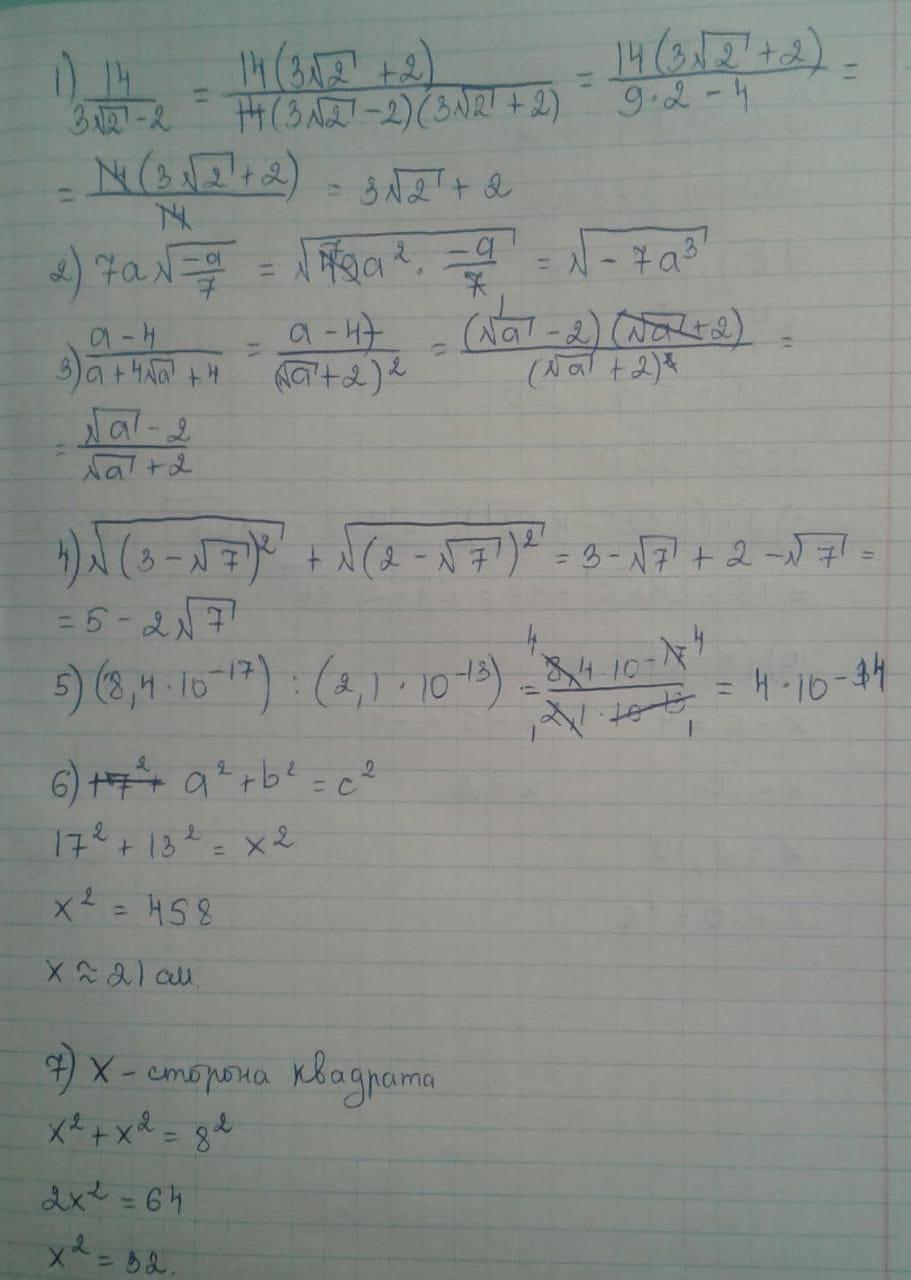 1) 14/(3√2 - 2) = 14(3√2 + 2)/((3√2 - 2)(3√2 + 2)) = 14(3√2 + 2)/(9·2 - 4) =
= 14(3√2 + 2)/14 = 3√2 + 2
2) 7a√(-a/7) = √(49a² · -a/7) = √(-7a³)
3) (a - 4)/(a + 4√a + 4) = (a - 4)/(√a + 2)² = (√a - 2)(√a + 2)/(√a + 2)² =
= (√a - 2)/(√a + 2)
4) √(3 - √7)² + √(2 - √7)² = 3 - √7 + 2 - √7 =
= 5 - 2√7
5) (8,4 · 10⁻¹⁷) : (2,1 · 10⁻¹³) = 8,4 · 10⁻¹⁷/2,1 · 10⁻¹³ = 4 · 10⁻⁴
6) a² + b² = c²
17² + 13² = x²
x² = 458
x ≈ 21 см.
7) x - сторона квадрата
x² + x² = 8²
2x² = 64
x² = 32.